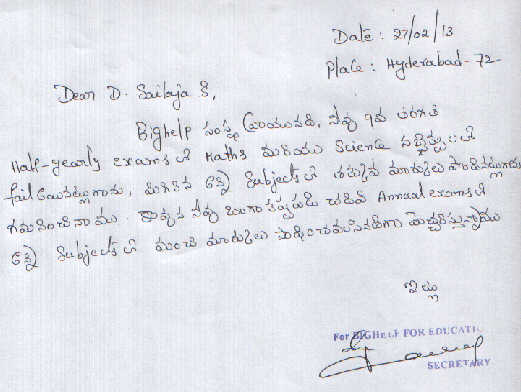 Date : 27/02/13
Place : Hyderabad - 72
Dear D. Sailaja S,
Bighelp సంస్థ వ్రాయునది, నీవు 9వ తరగతి
Half-yearly exams లో Maths మరియు Science సబ్జెక్ట్స్ లో
fail అయినట్లుగాను, మిగిలిన అన్ని Subjects లో తక్కువ మార్కులు పొందినట్లుగాను
గమనించినాము. కావున నీవు బాగా కష్టపడి చదివి Annual exams లో
అన్ని Subjects లో మంచి మార్కులు సాధించవలసినదిగా హెచ్చరిస్తున్నాము
ఇట్లు
For BIGHELP FOR EDUCATIO
SECRETARY